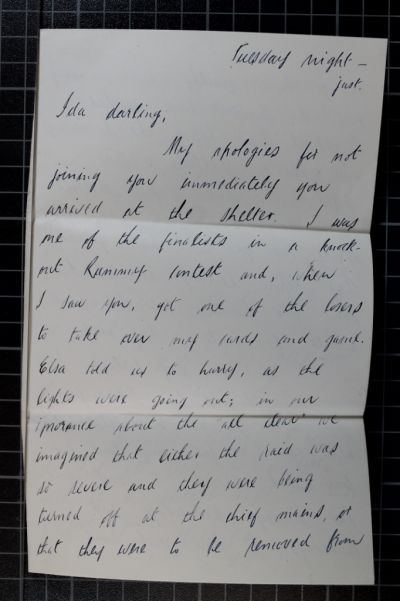 Tuesday night –
just.
Ida darling,
My apologies for not
joining you immediately you
arrived at the shelter. I was
one of the finalists in a knock-
out Rummy contest and, when
I saw you, got one of the losers
to take over my cards and game.
Elsa told us to hurry, as the
lights were going out; in our
ignorance about the "all clear" we
imagined that either the raid was
so severe and they were being
turned off at the chief mains, or
that they were to be removed from